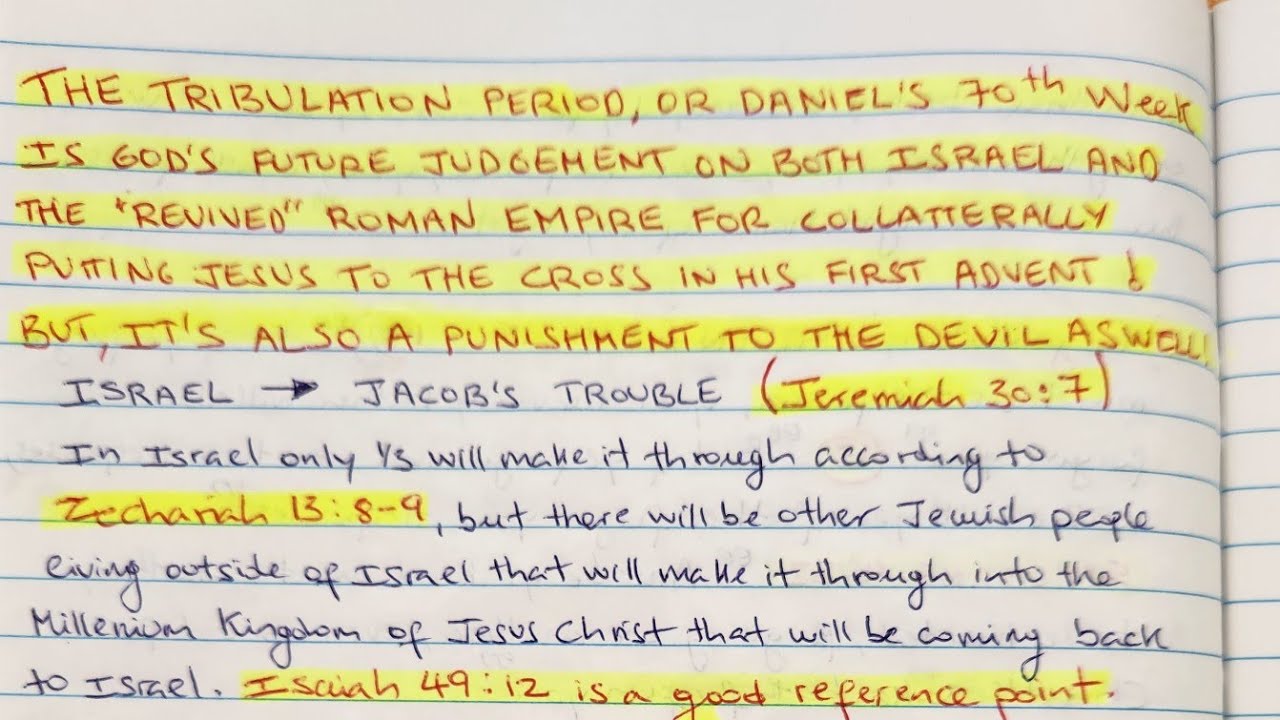 THE TRIBULATION PERIOD, OR DANIEL'S 70th Week
IS GOD'S FUTURE JUDGEMENT ON BOTH ISRAEL AND
THE "REVIVED" ROMAN EMPIRE FOR COLLATTERALLY
PUTTING JESUS TO THE CROSS IN HIS FIRST ADVENT!
BUT, IT'S ALSO A PUNISHMENT TO THE DEVIL ASWELL.
ISRAEL → JACOB'S TROUBLE (Jeremiah 30:7)
In Israel only 1/3 will make it through according to
Zechariah 13:8-9, but there will be other Jewish people
living outside of Israel that will make it through into the
Millenium Kingdom of Jesus Christ that will be coming back
to Israel. Isaiah 49:12 is a good reference point.